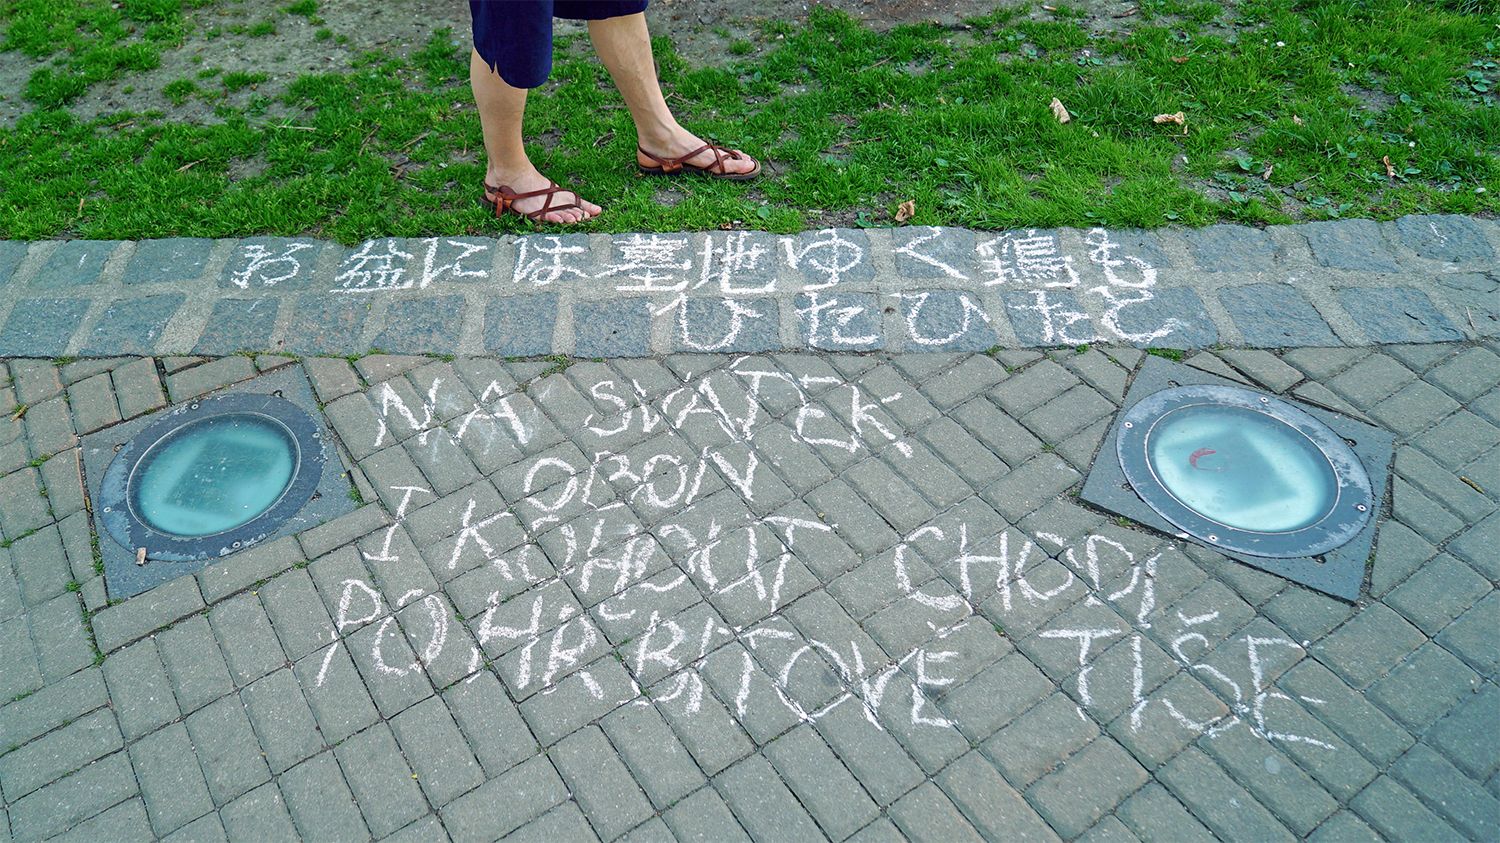 お盆には墓地ゆく鶏も
ひたひたと
NA SVÁTEK
OBON
I KOHOUT CHODÍ
PO HŘBITOVĚ TIŠE